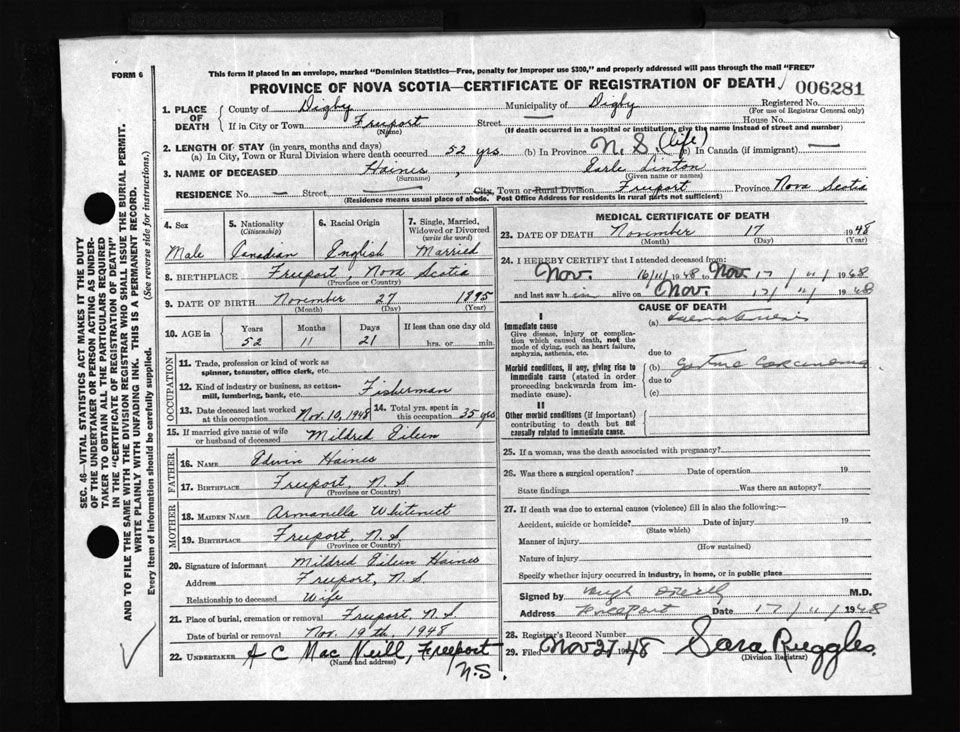 This form if placed in an envelope, marked "Dominion Statistics—Free, penalty for improper use $300," and properly addressed will pass through the mail "FREE"
FORM 6
PROVINCE OF NOVA SCOTIA—CERTIFICATE OF REGISTRATION OF DEATH 006281
1. PLACE OF DEATH
County of Digby Municipality of Digby Registered No.
(For use of Registrar General only)
If in City or Town Freeport Street — House No.
(Name) (If death occurred in a hospital or institution, give the name instead of street and number)
2. LENGTH OF STAY (in years, months and days)
(a) In City, Town or Rural Division where death occurred 52 yrs (b) In Province N. S. (life) (c) In Canada (if immigrant) —
3. NAME OF DECEASED Haines, Earle Linton
(Surname) (Given name or names)
RESIDENCE No. — Street — City, Town or Rural Division Freeport Province Nova Scotia
(Residence means usual place of abode. Post Office Address for residents in rural parts not sufficient)
4. Sex 5. Nationality (Citizenship) 6. Racial Origin 7. Single, Married, Widowed or Divorced (write the word)
Male Canadian English Married
8. BIRTHPLACE Freeport, Nova Scotia
(Province or Country)
9. DATE OF BIRTH November 27 1895
(Month) (Day) (Year)
10. AGE in Years Months Days If less than one day old
52 11 21 hrs. or min.
OCCUPATION
11. Trade, profession or kind of work as spinner, teamster, office clerk, etc.
12. Kind of industry or business, as cotton-mill, lumbering, bank, etc. Fisherman
13. Date deceased last worked at this occupation Nov. 10, 1948 14. Total yrs. spent in this occupation 35 yrs
15. If married give name of wife or husband of deceased Mildred Eileen
FATHER
16. NAME Edwin Haines
17. BIRTHPLACE Freeport, N. S.
(Province or Country)
MOTHER
18. MAIDEN NAME Armanella
19. BIRTHPLACE Freeport, N. S.
(Province or Country)
20. Signature of informant Mildred Eileen Haines
Address Freeport, N. S.
Relationship to deceased Wife
21. Place of burial, cremation or removal Freeport, N. S.
Date of burial or removal Nov. 19th, 1948
22. UNDERTAKER A C Mac Neill, Freeport N.S.
(Name and address)
MEDICAL CERTIFICATE OF DEATH
23. DATE OF DEATH November 17 1948
(Month) (Day) (Year)
24. I HEREBY CERTIFY that I attended deceased from:
Nov. 16/11/1948 to Nov. 17/11/1948
and last saw him alive on Nov. 17/11/1948
CAUSE OF DEATH
I
Immediate cause (a)
Give disease, injury or complication which caused death, not the mode of dying, such as heart failure, asphyxia, asthenia, etc.
due to
Morbid conditions, if any, giving rise to immediate cause (stated in order proceeding backwards from immediate cause). (b)
due to
(c)
II
Other morbid conditions (if important) contributing to death but not causally related to immediate cause.
25. If a woman, was the death associated with pregnancy?
26. Was there a surgical operation? Date of operation 19
State findings Was there an autopsy?
27. If death was due to external causes (violence) fill in also the following:—
Accident, suicide or homicide? Date of injury 19
(State which)
Manner of injury
(How sustained)
Nature of injury
Specify whether injury occurred in industry, in home, or in public place
Signed by M.D.
Address Freeport Date 17/11/1948
28. Registrar's Record Number
29. Filed Nov 27 1948 Sara Ruggles.
(Division Registrar)
SEC. 46—VITAL STATISTICS ACT MAKES IT THE DUTY
OF THE UNDERTAKER OR PERSON ACTING AS UNDER-
TAKER TO OBTAIN ALL THE PARTICULARS REQUIRED
IN THE "CERTIFICATE OF REGISTRATION OF DEATH"
AND TO FILE THE SAME WITH THE DIVISION REGISTRAR WHO SHALL ISSUE THE BURIAL PERMIT.
WRITE PLAINLY WITH UNFADING INK. THIS IS A PERMANENT RECORD.
Every item of information should be carefully supplied. (See reverse side for instructions.)